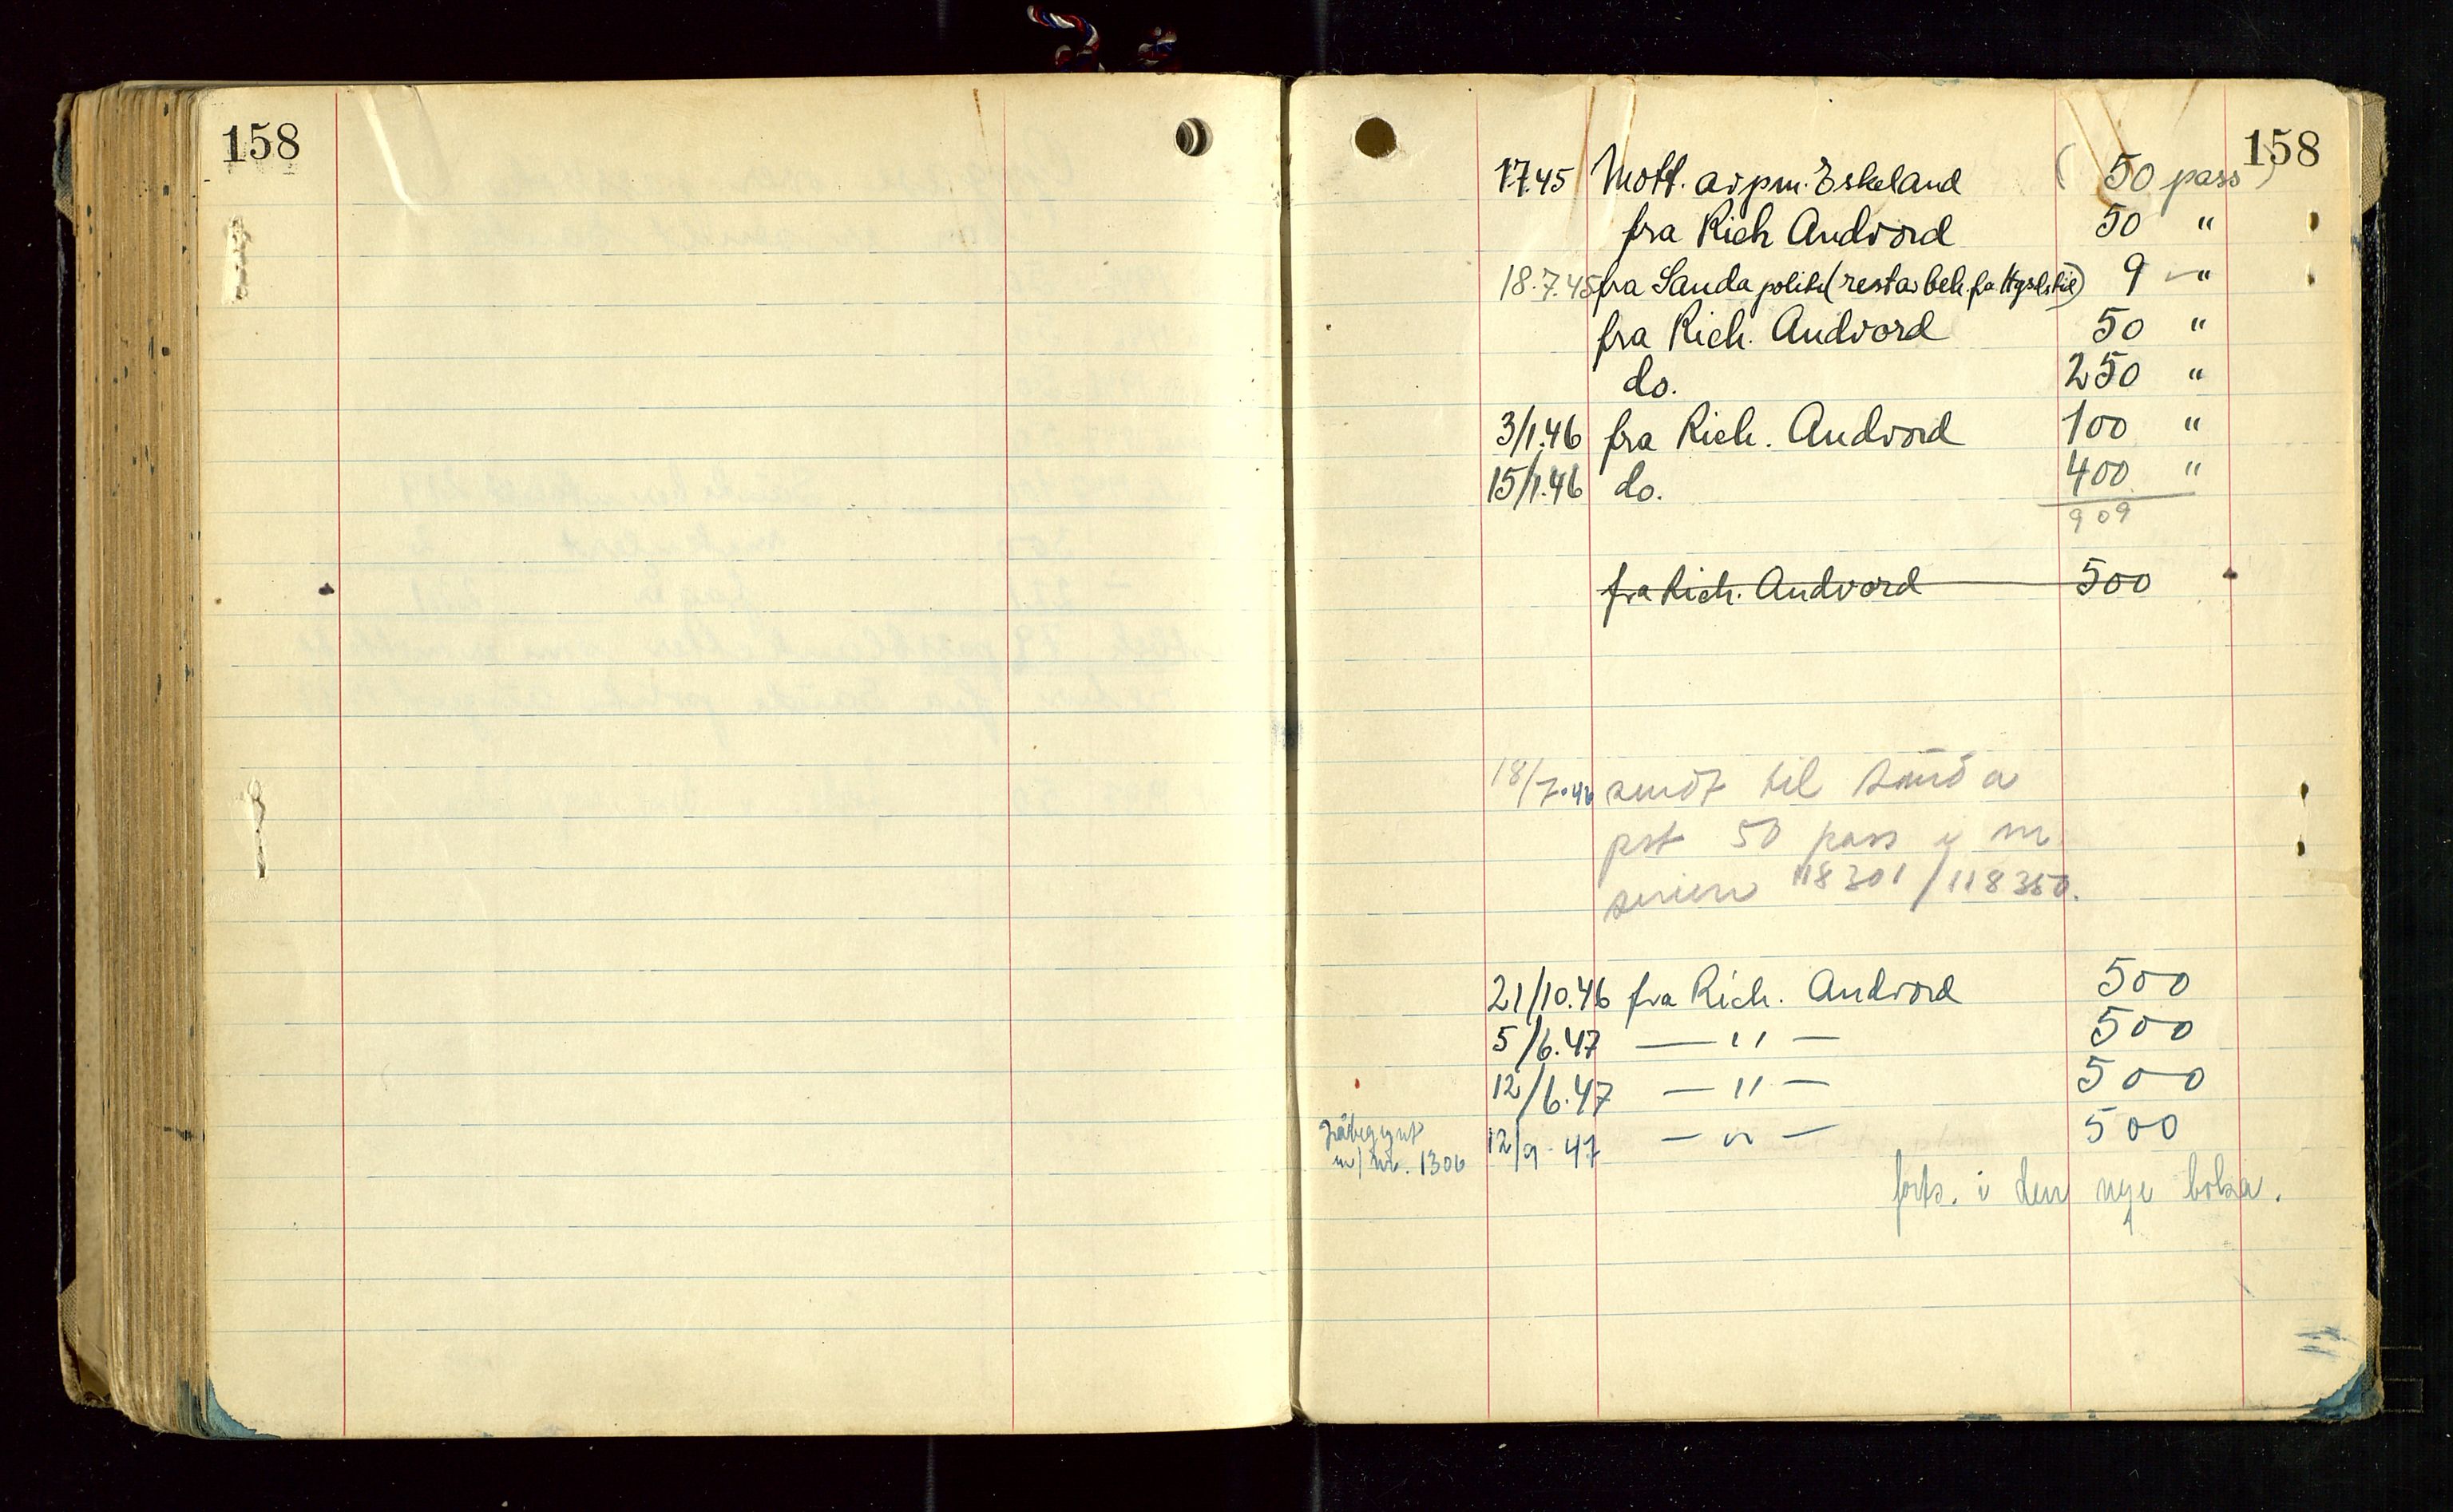 158
158
1.7.45 Mott. av pm. Eskeland ( 50 pass )
fra Rich Andvord 50 "
18.7.45 fra Sauda politi (restav beh. fra Haugesl 9 — "
fra Rich. Andvord 50 "
do. 250 "
3/1.46 fra Rich. Andvord 100 "
15/1.46 do. 400 "
909
fra Rich. Andvord 500
18/7.46 sendt til Sauda
pst 50 pass i nr.
serien 118301/118350.
21/10.46 fra Rich. Andvord 500
5/6.47 — " — 500
12/6.47 — " — 500
påbegynt
m/ nr. 1306
12/9.47 — " — 500
forts. i den nye boka.